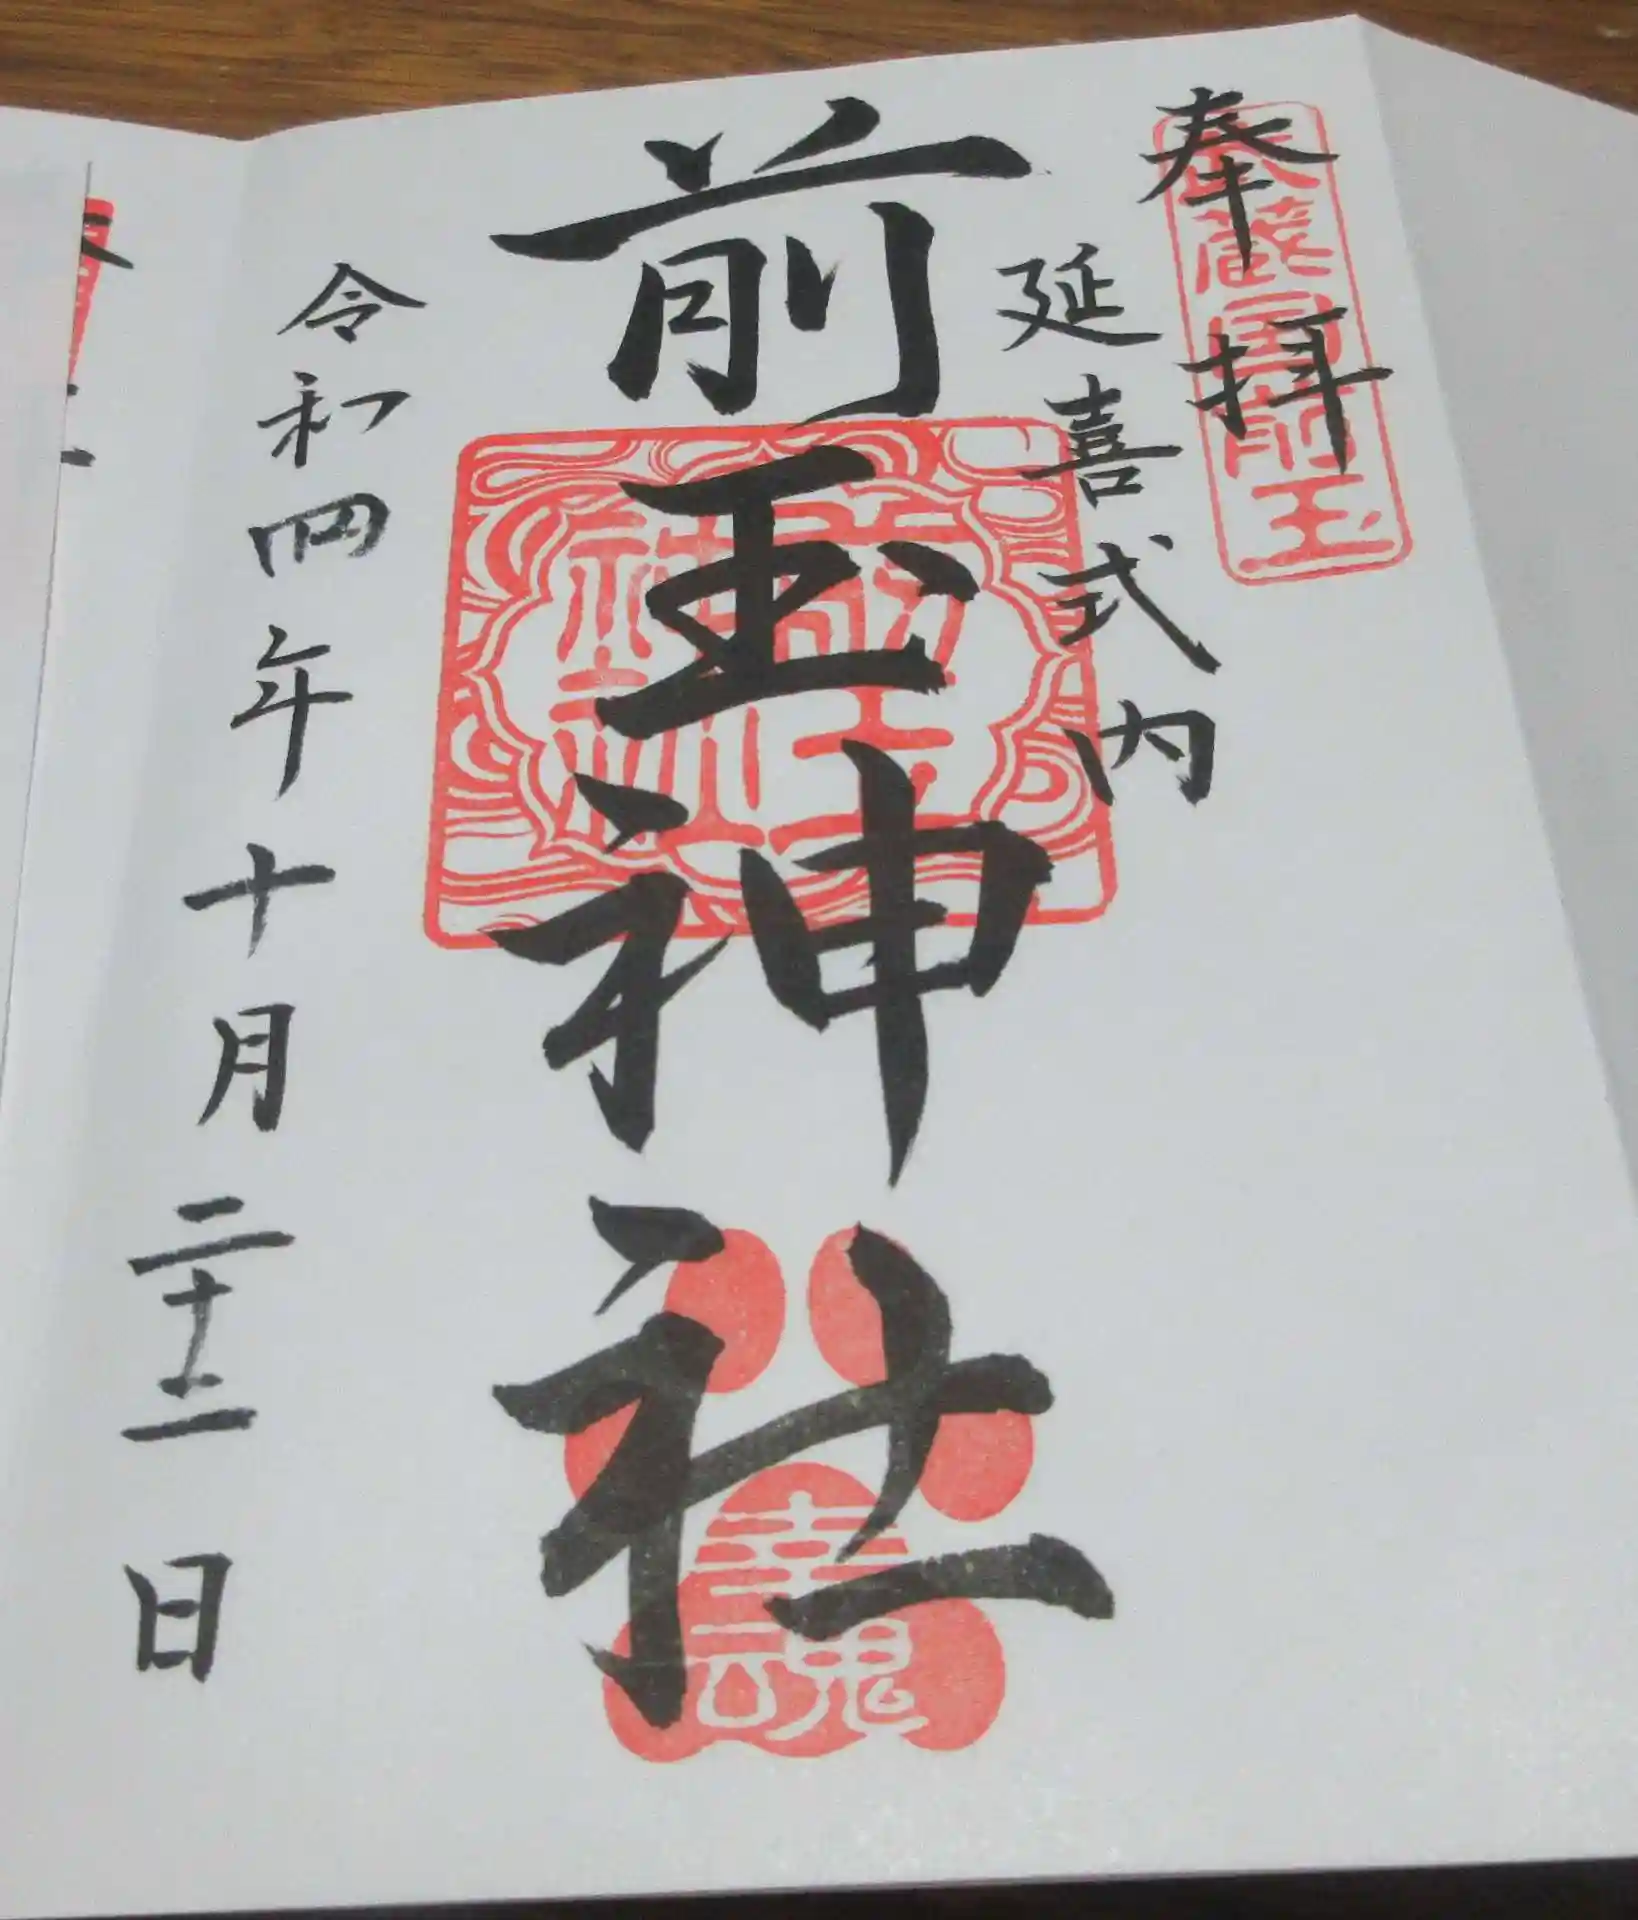 奉拝
武蔵国前玉
延喜式内
前玉神社
前玉神社
幸魂
令和四年十月二十二日